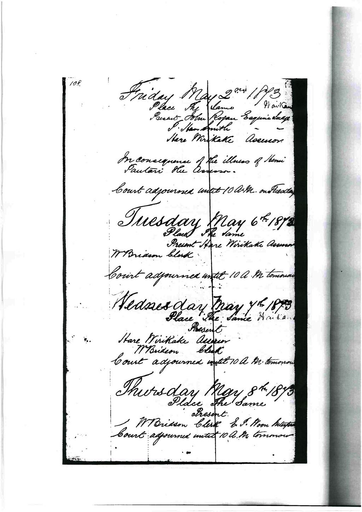 108
Friday May 2nd 1873
Place The Same Waikanae
Present John Rogan Esquire Judge
J. Hansmith " "
Hare Wirikake Assessor
In consequence of the illness of Hemi
Tautari the Assessor.
Court adjourned until 10 A.M. on Tuesday
Tuesday May 6th 1873
Place The Same
Present Hare Wirikake Assessor
W Bridson Clerk
Court adjourned until 10 A.M. tomorrow
Wednesday May 7th 1873
Place The Same
Present
Hare Wirikake Assessor
W Bridson Clerk
Court adjourned until 10 A.M. tomorrow
Thursday May 8th 1873
Place The Same
Present
W Bridson Clerk
Court adjourned until 10 A.M. tomorrow